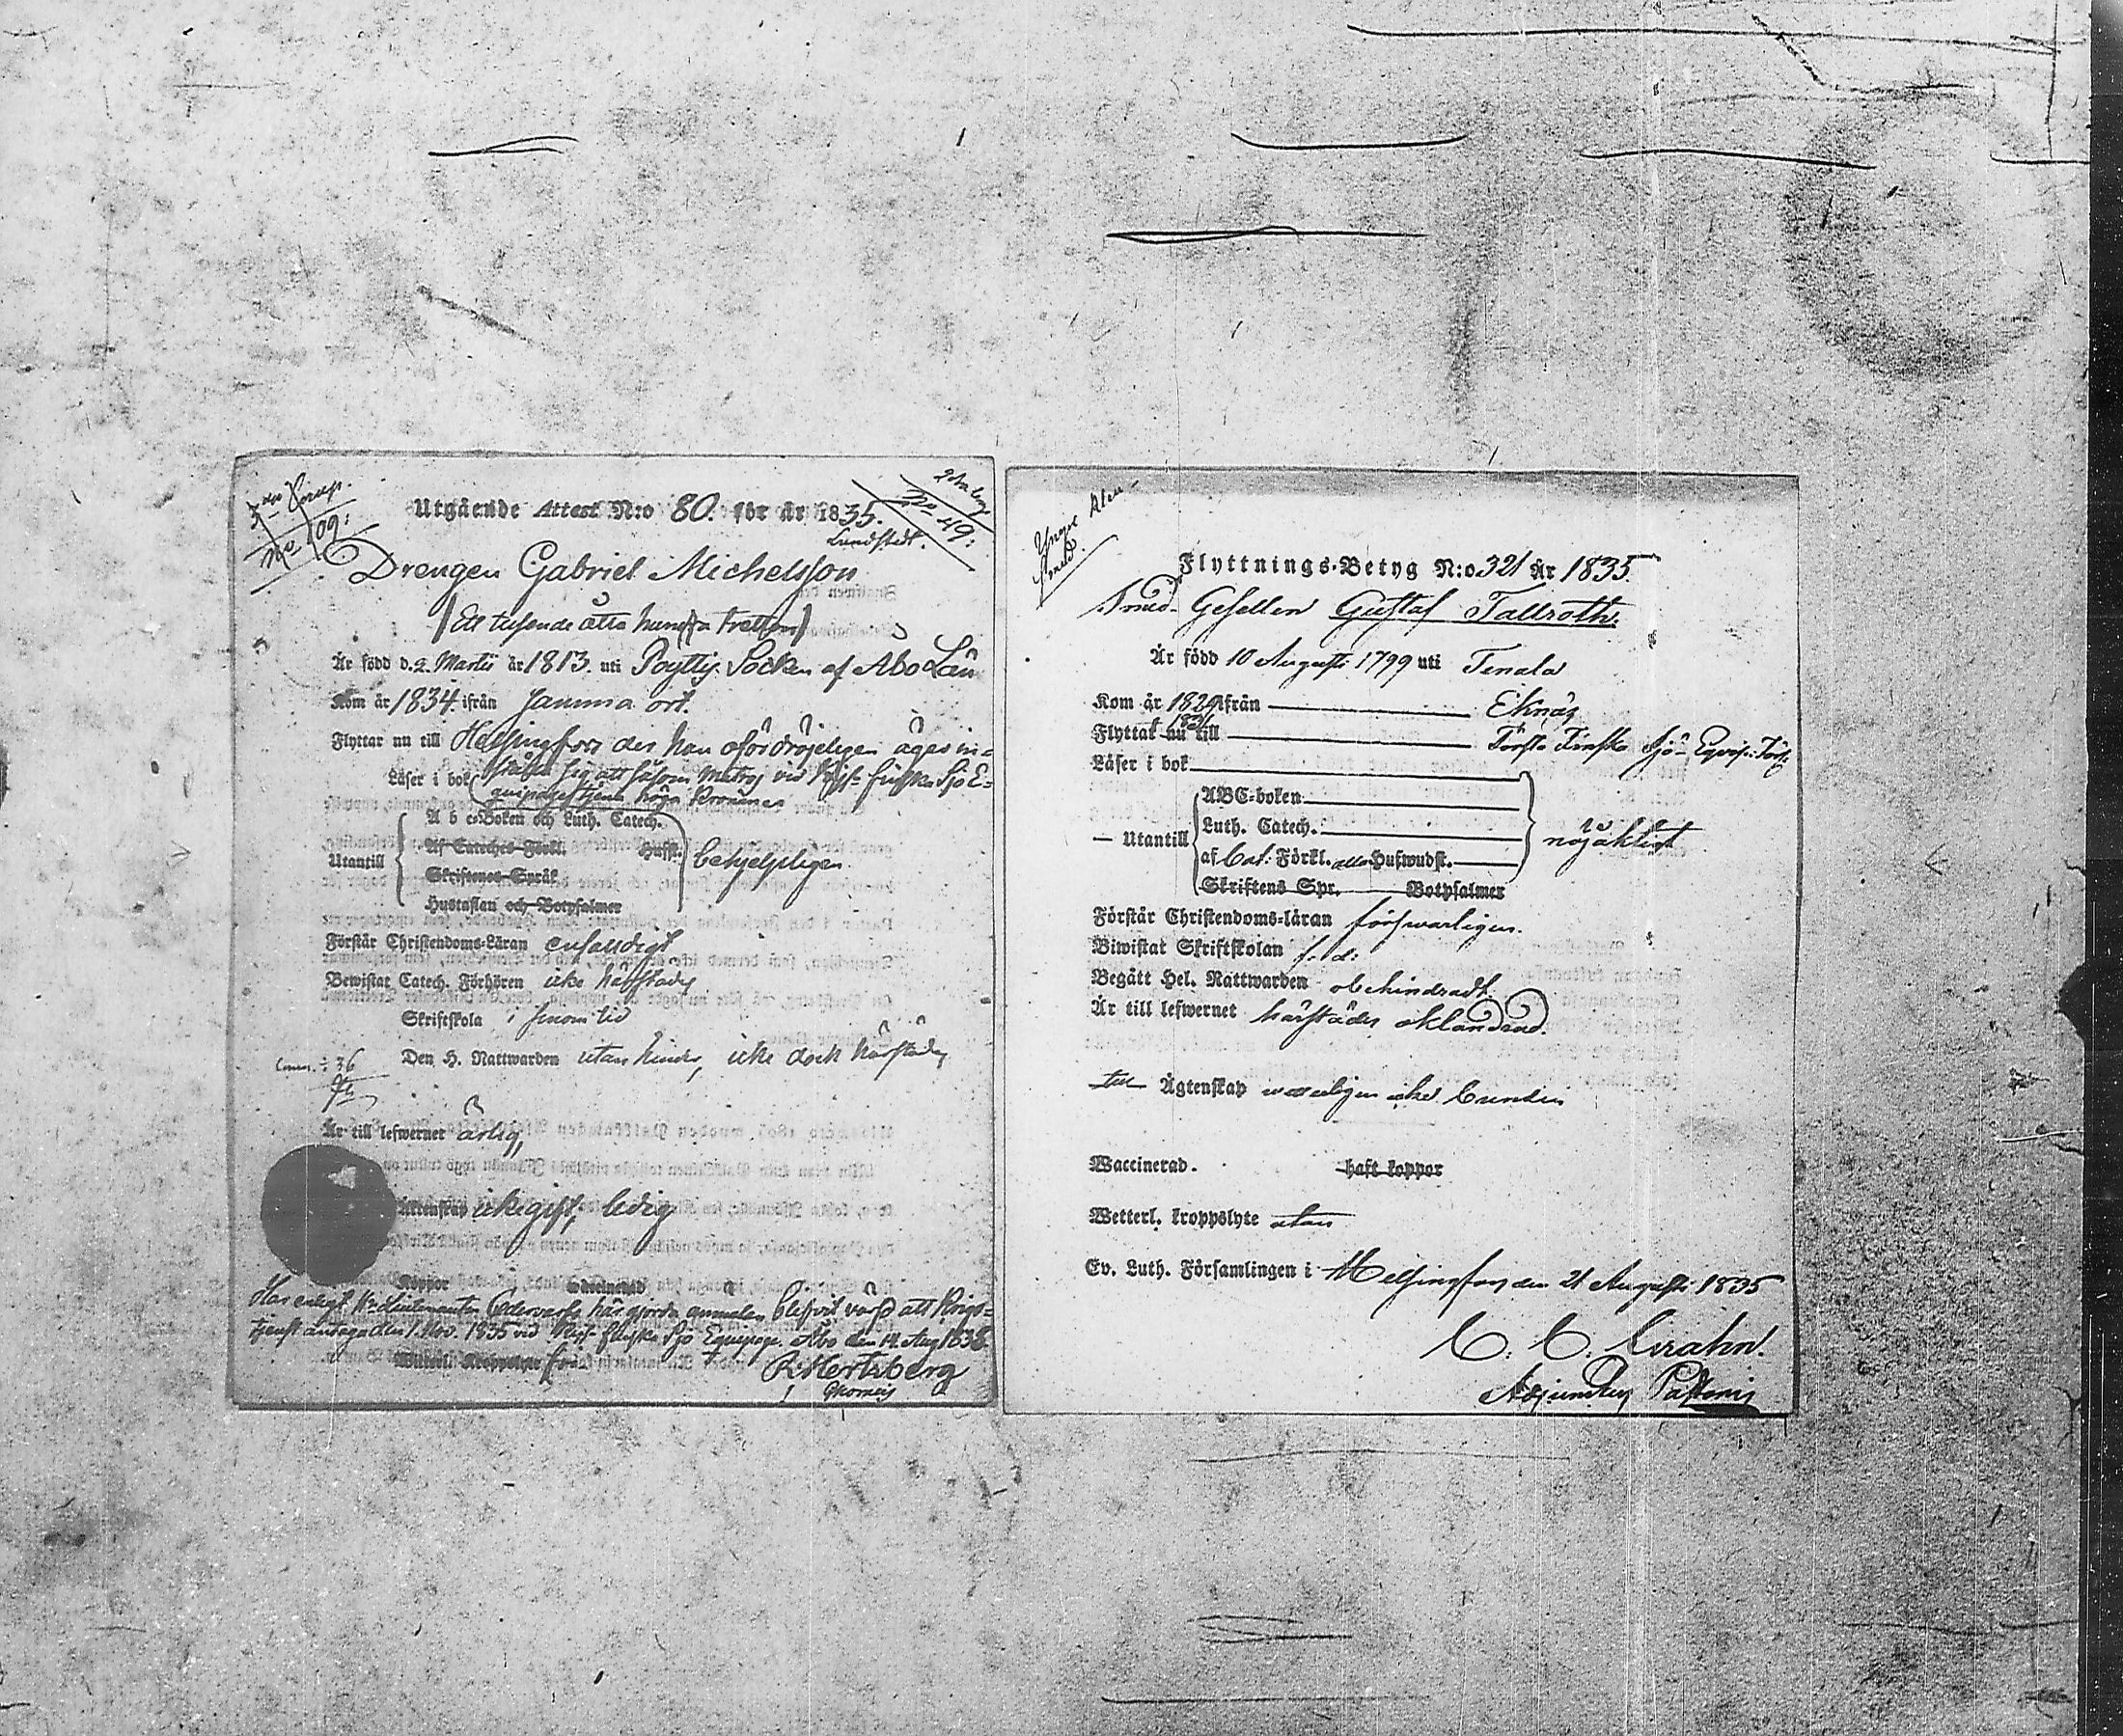 Utgående Attest N:o 80. för år 1835.
N:o 49:
109:
Lundstedt.
Drengen Gabriel Michelsson
(Ett tusende åtta hundra tretton)
Är född d. 2 Martii år 1813. uti Pöyttis Socken af Åbo Län
Kom år 1834. ifrån samma ort.
Flyttar nu till Helsingfors der han ofördröjeligen äges in=
ställa sig att såsom Matros vid Kejs. finska Sjö E=
quipaget tjena höga Kronan
Läser i bok
A b c=Boken och Luth. Catech.
Af Cateches Förkl. Husfl.
Utantill
Skriftenes Språk
Hustaflan och Botpsalmer
behjelpligen
Förstår Christendoms-Läran enfaldigt
Bewistat Catech. Förhören icke härstädes
Skriftskola i sinom tid
Comm. : 36
Den H. Nattwarden utan hinder, icke dock härstädes
Är till lefwernet ärlig,
Ägtenskap icke gift, ledig
Koppor waccinerad
Har enligt Hr Lieutenanten Cedervarfs här gjorda anmälan blefvit värfd att Krigs=
tjenst antaga den 1. Nov. 1835 vid Kejs. finska Sjö Equipage. Åbo den 14. Aug 1835.
Witterl. Kroppslyte fri
R: Hertzberg
Flyttnings-Betyg N:o 321 År 1835.
Smed-Gesellen Gustaf Tallroth.
Är född 10 Augusti 1799 uti Tenala
Kom år 1829 ifrån Eknäs
Flyttat nu 1831 till Första Finska Sjö-Equip.
Läser i bok
ABC-boken
Luth. Catech.
— Utantill
af Cat: Förkl. alla Hufwudst.
Skriftens Spr. Botpsalmer
nöjaktigt
Förstår Christendoms-läran försvarligen.
Biwistat Skriftskolan f. d:
Begått Hel. Nattwarden obehindradt
Är till lefwernet härstädes oklandrad.
till Ägtenskap vetterligen icke bunden
Waccinerad. haft koppor
Wetterl. kroppslyte utan
Ev. Luth. Församlingen i Helsingfors den 21 Augusti 1835
C. C. Crahn.
Adjunctus Pastoris